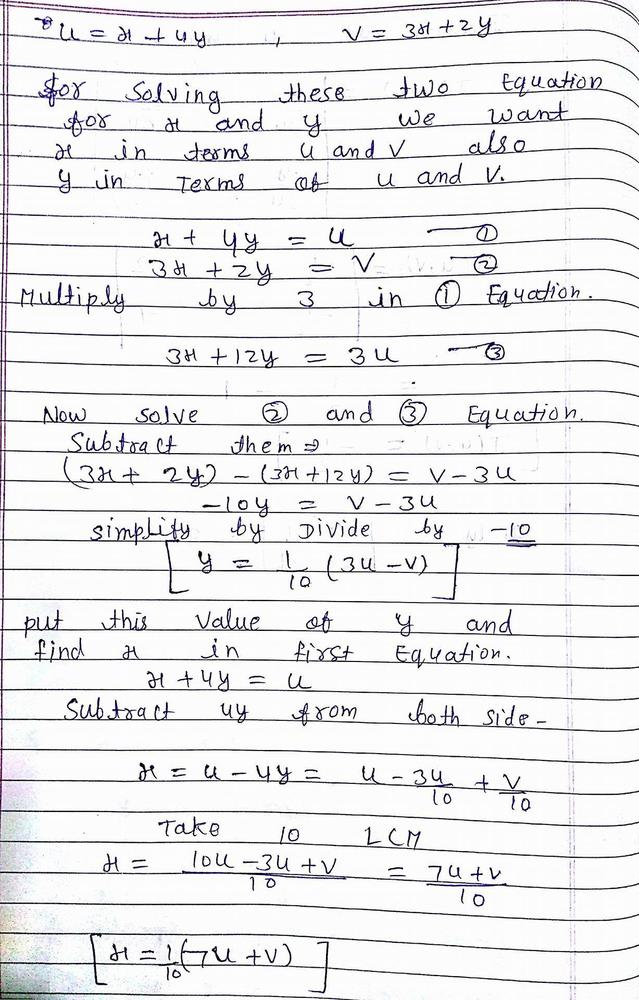 u = x + 4y , v = 3x + 2y
for solving these two Equation
for x and y we want
x in terms u and v also
y in Terms of u and v.
x + 4y = u — ①
3x + 2y = v — ②
Multiply by 3 in ① Equation.
3x + 12y = 3u — ③
Now solve ② and ③ Equation.
Subtract them ⇒
(3x + 2y) - (3x + 12y) = v - 3u
-10y = v - 3u
simplify by Divide by -10
[ y = 1/10 (3u - v) ]
put this value of y and
find x in first Equation.
x + 4y = u
Subtract 4y from both side -
x = u - 4y = u - 3u/10 + v/10
Take 10 LCM
x = 10u - 3u + v/10 = 7u + v/10
[ x = 1/10 (7u + v) ]